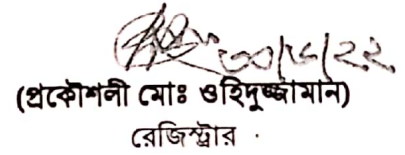 ৩০/৬/২২
(প্রকৌশলী মোঃ ওহিদুজ্জামান)
রেজিস্ট্রার